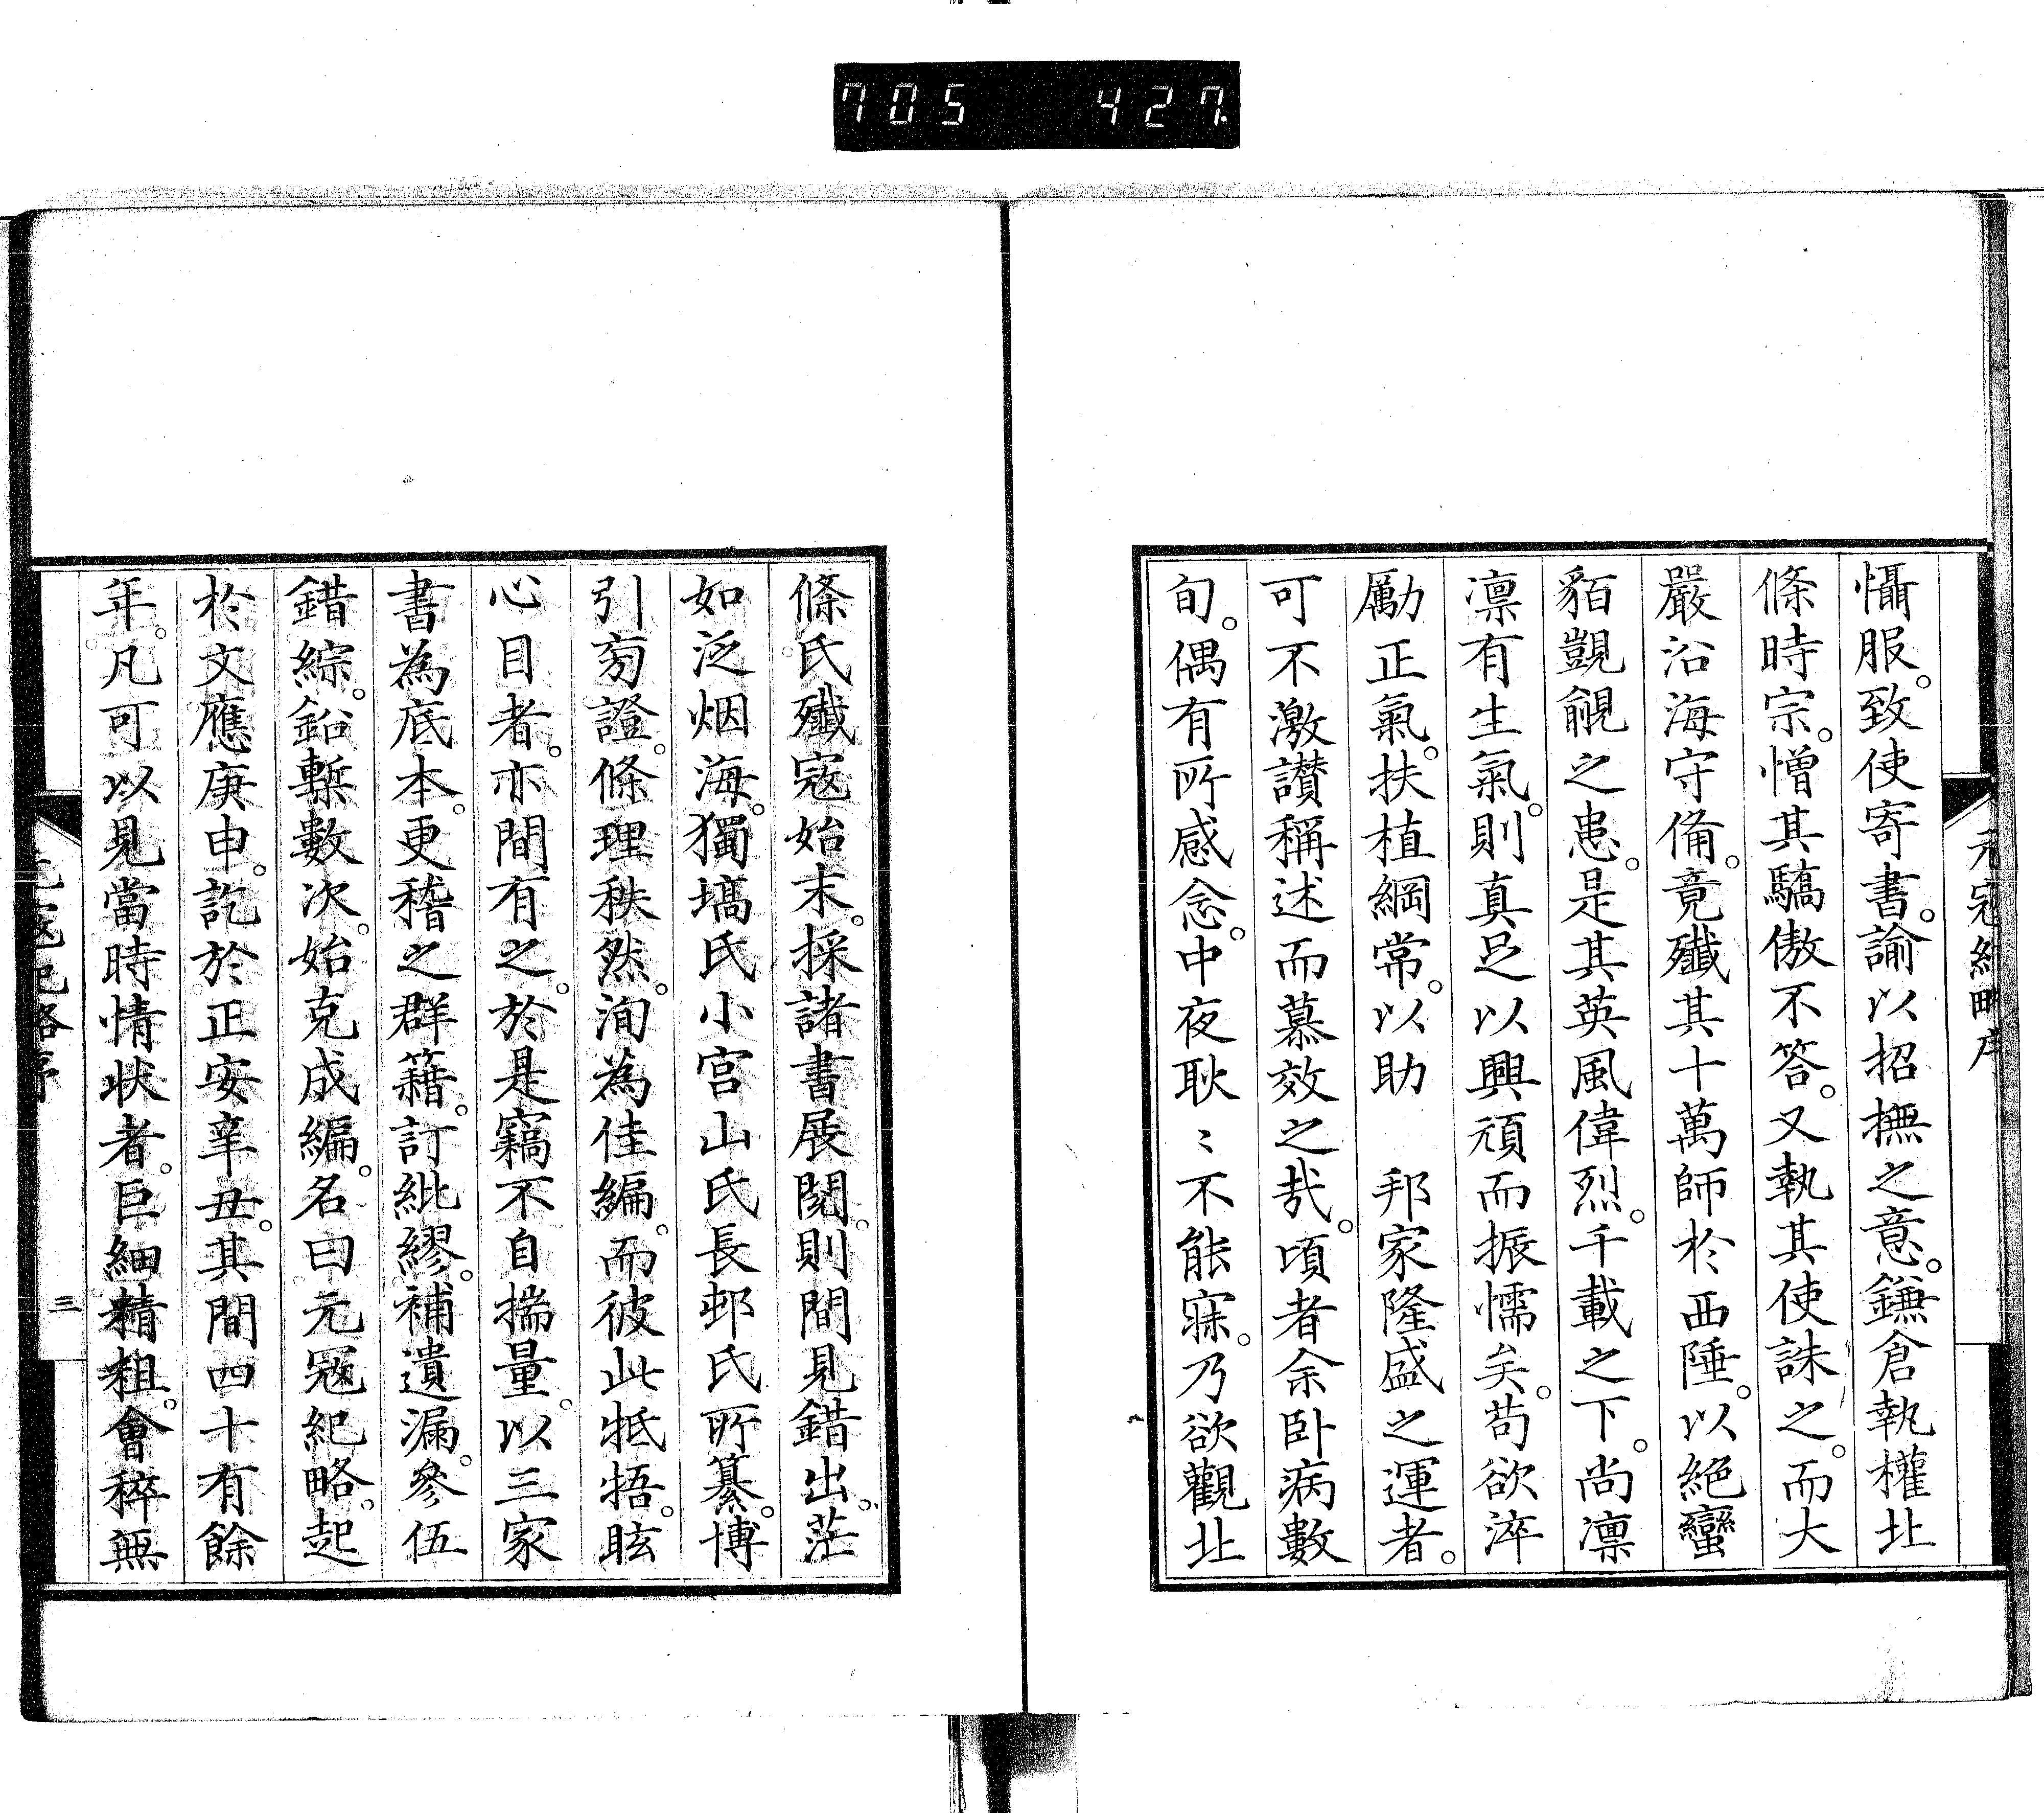 705 427.
元寇紀略序
懾服。致使寄書。諭以招撫之意。鎌倉執權北
條時宗。憎其驕傲不答。又執其使誅之。而大
嚴沿海守備。竟殲其十萬師於西陲。以絕蠻
貊覬覦之患。是其英風偉烈。千載之下。尚凛
凛有生氣。則真足以興頑而振懦矣。苟欲淬
勵正氣。扶植綱常。以助　邦家隆盛之運者。
可不激讃稱述而慕效之哉。頃者余卧病數
旬。偶有所感念。中夜耿〻不能寐。乃欲觀北
條氏殲寇始末。採諸書展閱。則間見錯出。茫
如泛烟海。獨塙氏小宮山氏長邨氏所纂。博
引旁證。條理秩然。洵為佳編。而彼此牴牾。眩
心目者。亦間有之。於是竊不自揣量。以三家
書為底本。更稽之群籍。訂紕繆。補遺漏。參伍
錯綜。鉛槧數次。始克成編。名曰元寇紀略。起
於文應庚申。訖於正安辛丑。其間四十有餘
年。凡可以見當時情状者。巨細精粗。會稡無
元寇紀略序
三